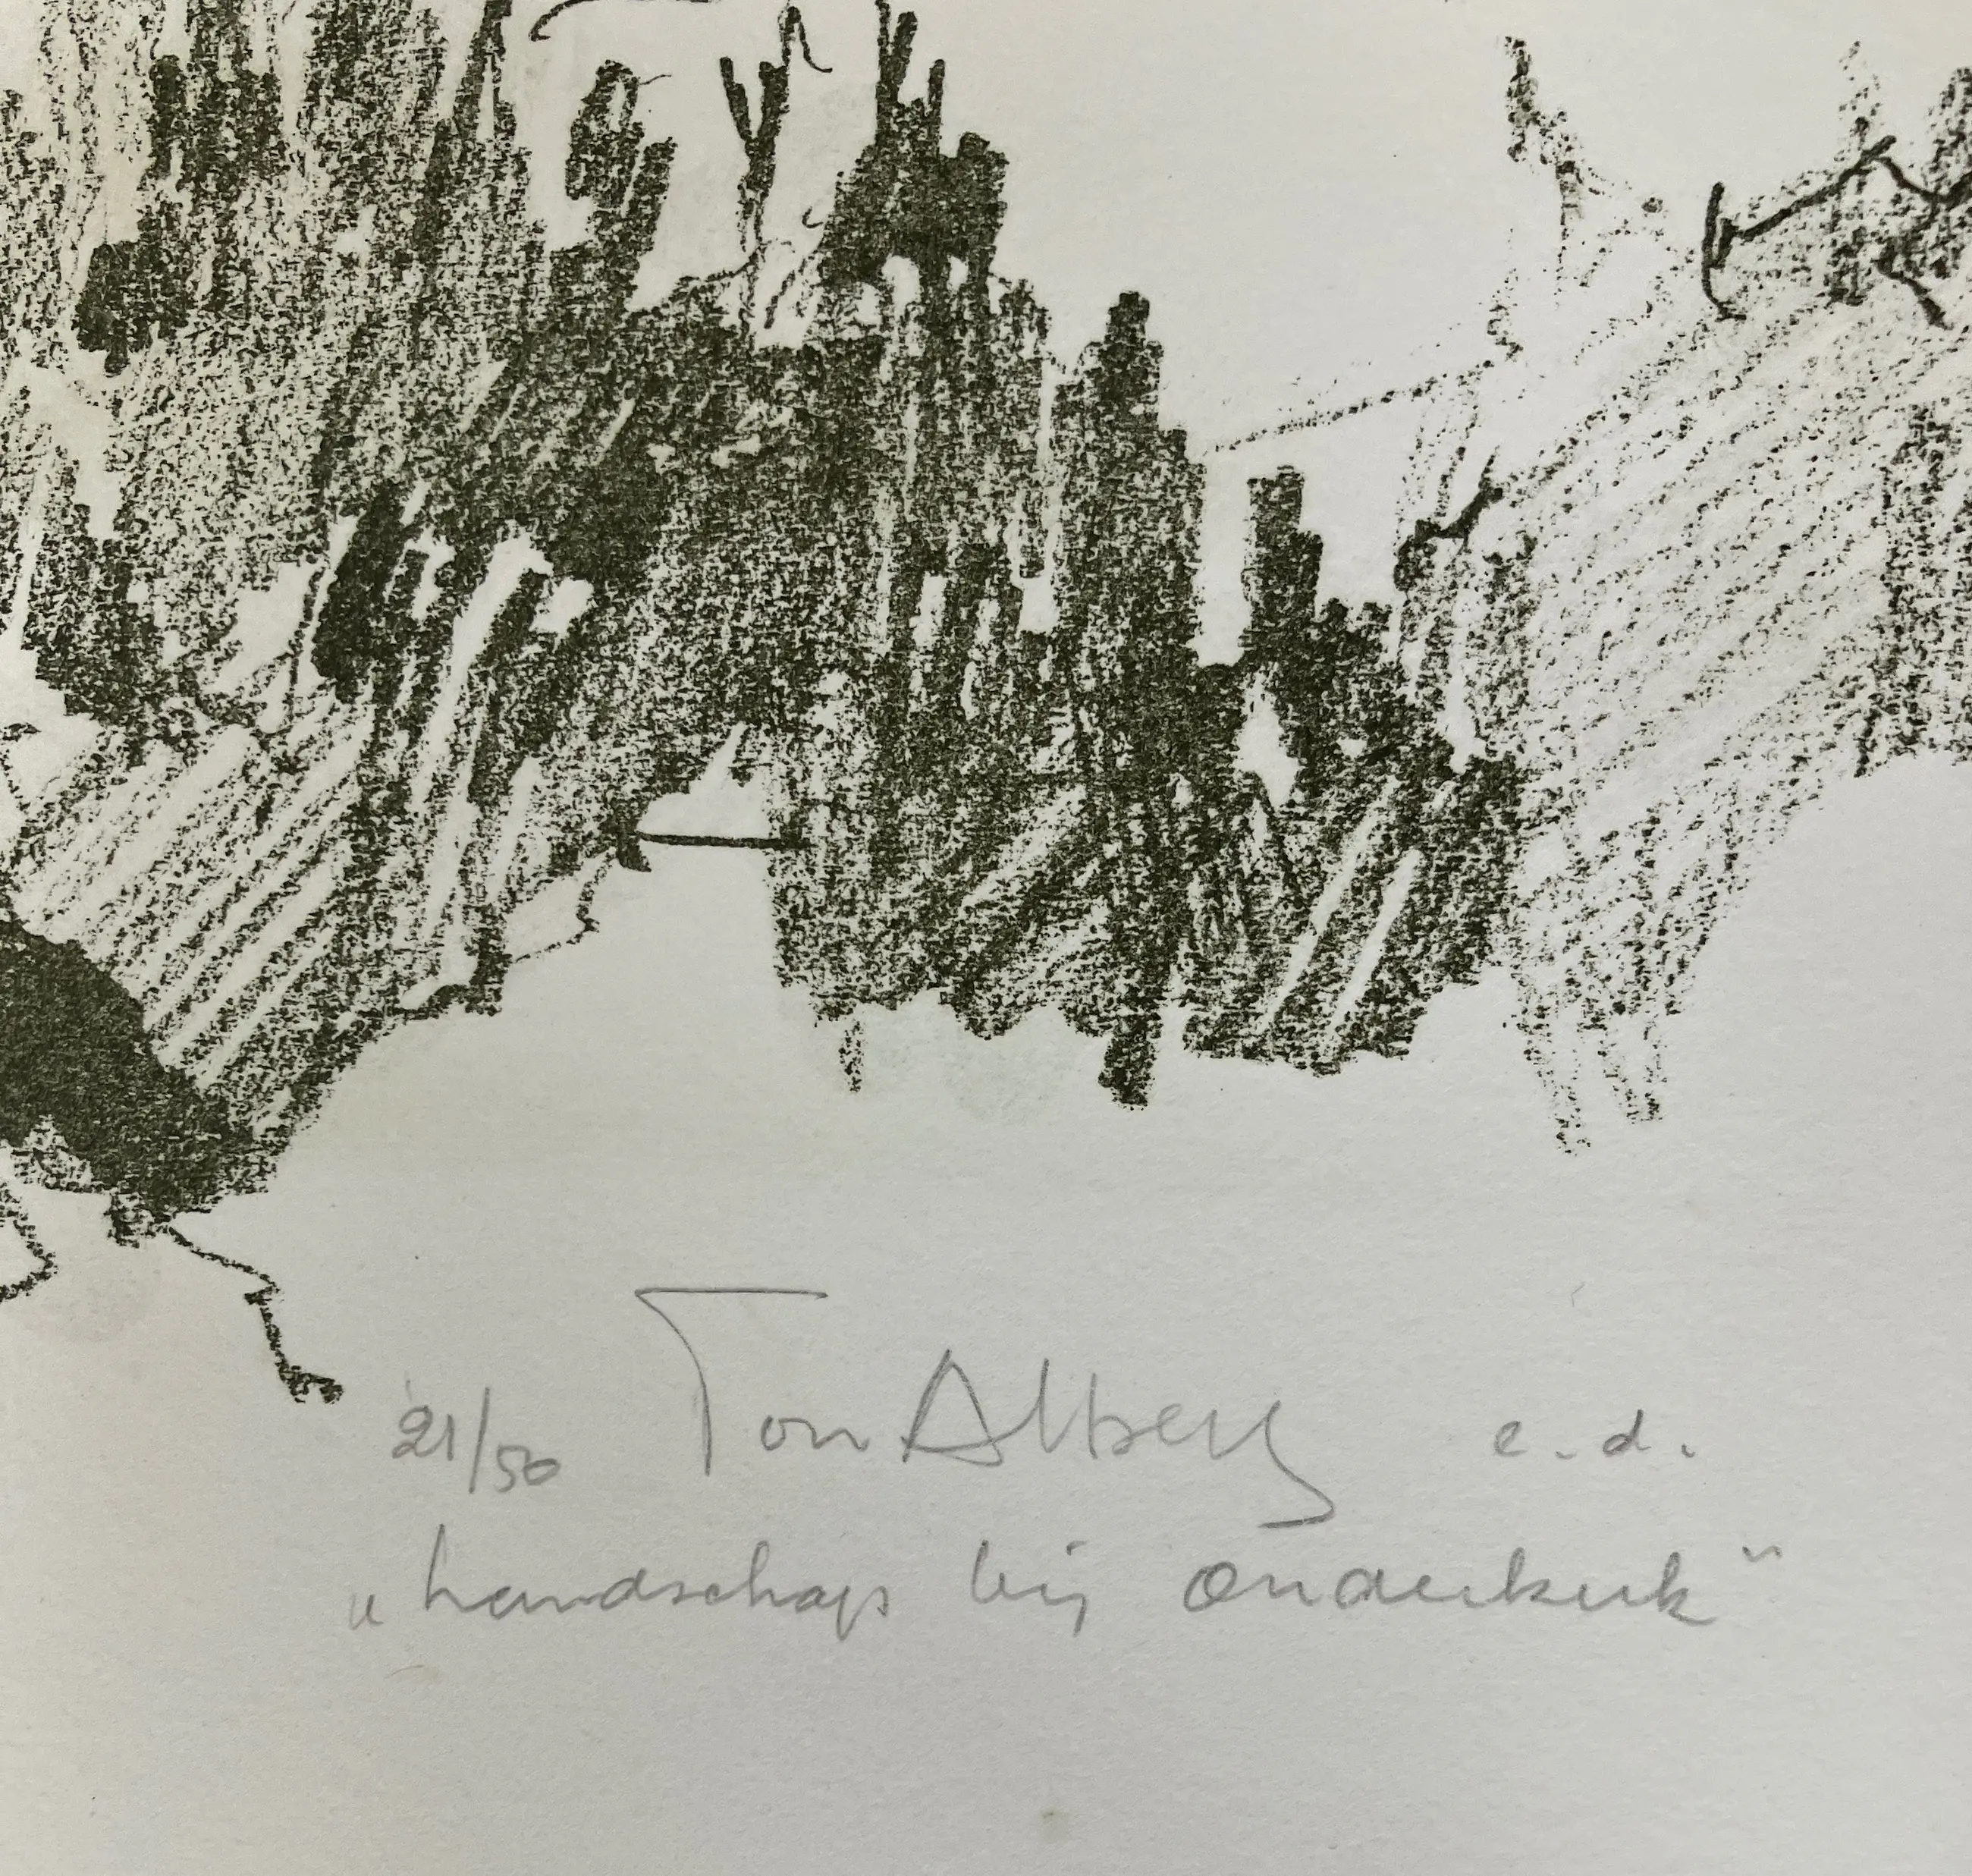 21/50 Ton Albert e.d.
„Landschap bij Ouderkerk"